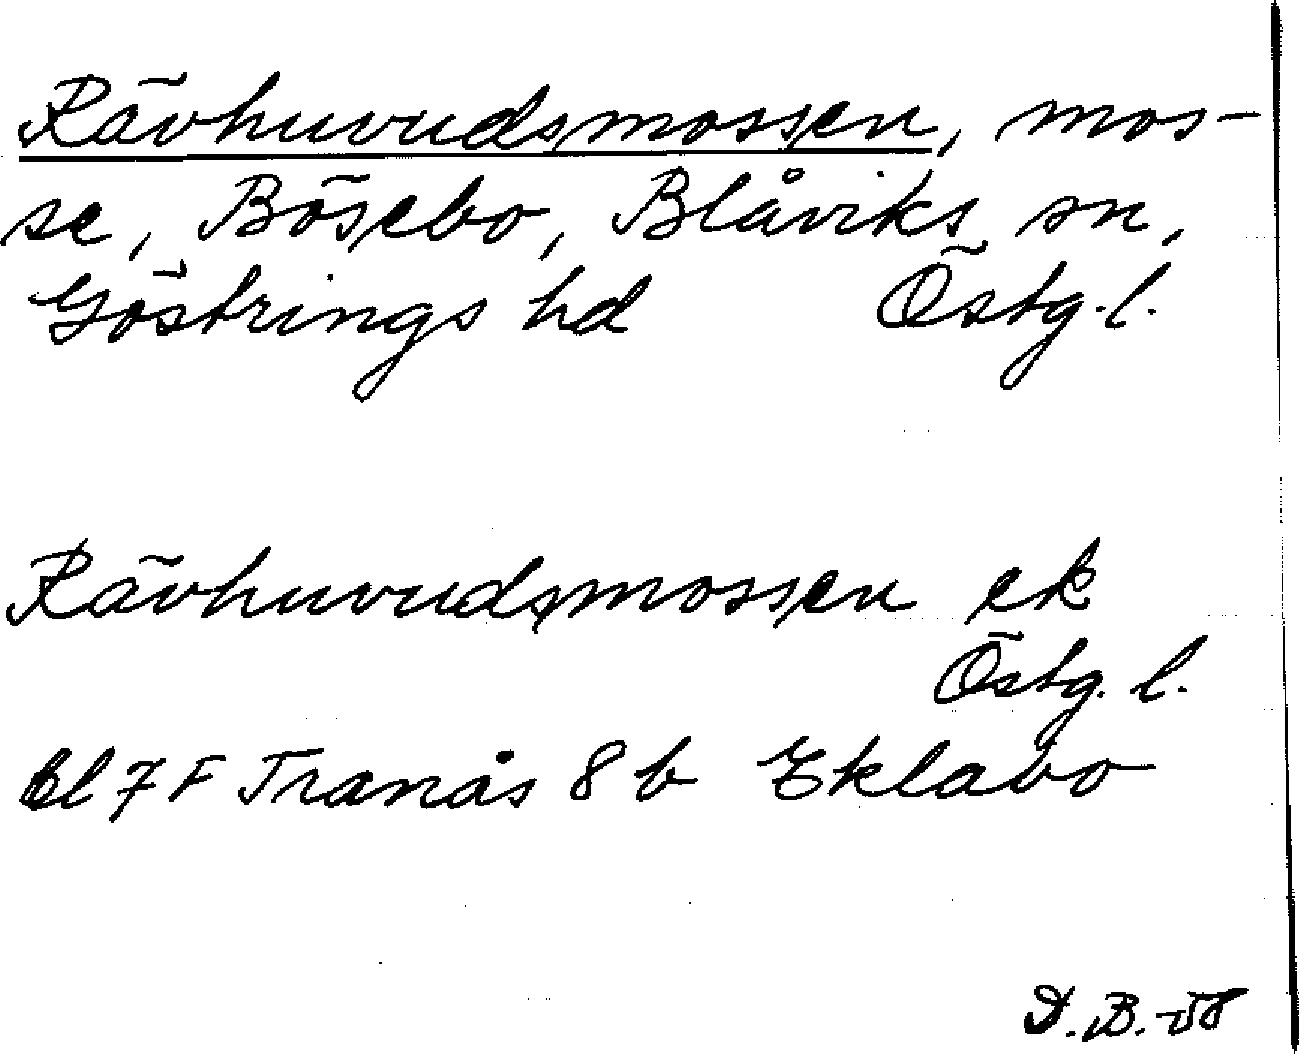 Rävhuvudsmossen, mos-
se, Bösebo, Blåviks sn,
Göstrings hd Östg.l.
Rävhuvudsmossen ek
Östg. l.
bl 7 F Tranås 8 b Eklabo
D.B.-58